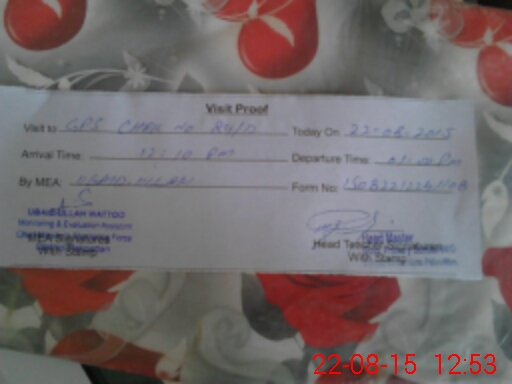 Visit Proof
Visit to GPS CHAK NO 84/D Today On 22-08-2015
Arrival Time: 12:10 PM Departure Time: PM
By MEA: UBAID ULLAH Form No:
UBAIDULLAH WATTOO
Monitoring & Evaluation Assistant
MEA Signatures
With Stamp
Head Master
Head Teacher
With Stamp
22-08-15 12:53